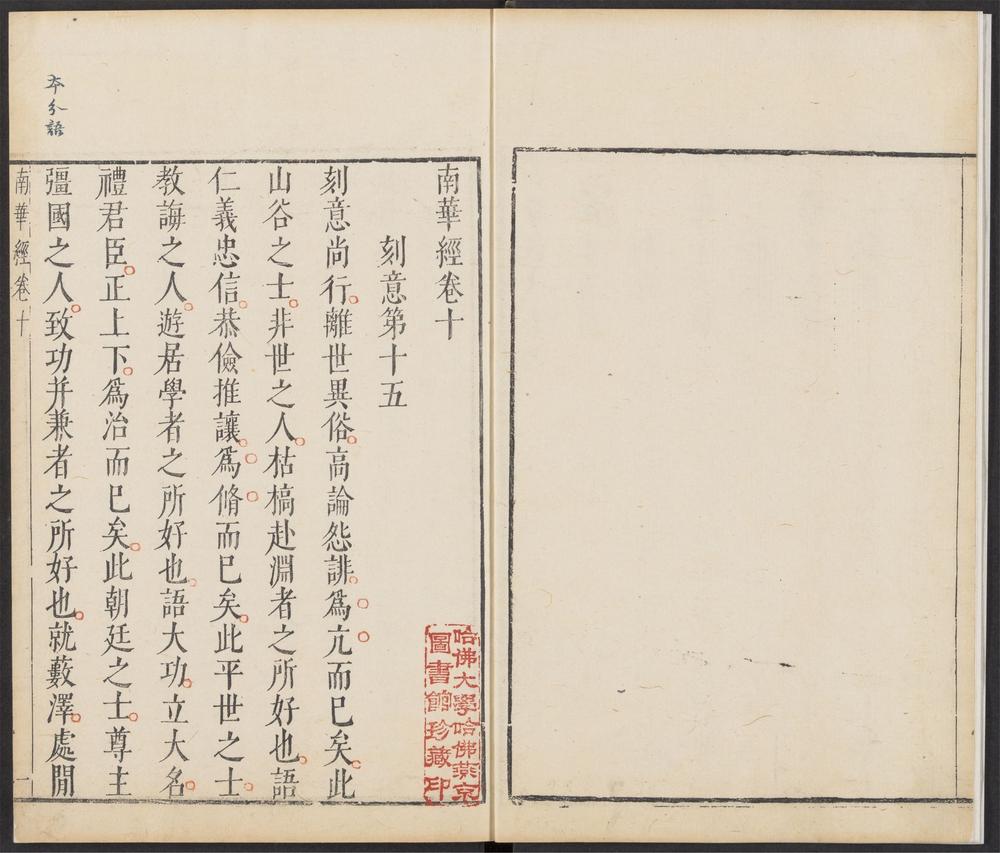 南華經卷十
刻意第十五
刻意尚行離世異俗高論怨誹爲亢而已矣此
山谷之士非世之人枯槁赴淵者之所好也語
仁義忠信恭儉推讓爲脩而已矣此平世之士
教誨之人遊居學者之所好也語大功立大名
禮君臣正上下爲治而已矣此朝廷之士尊主
彊國之人致功并兼者之所好也就藪澤處閒
南華經卷十
一
本分語
哈佛大學哈佛燕京
圖書館珍藏印